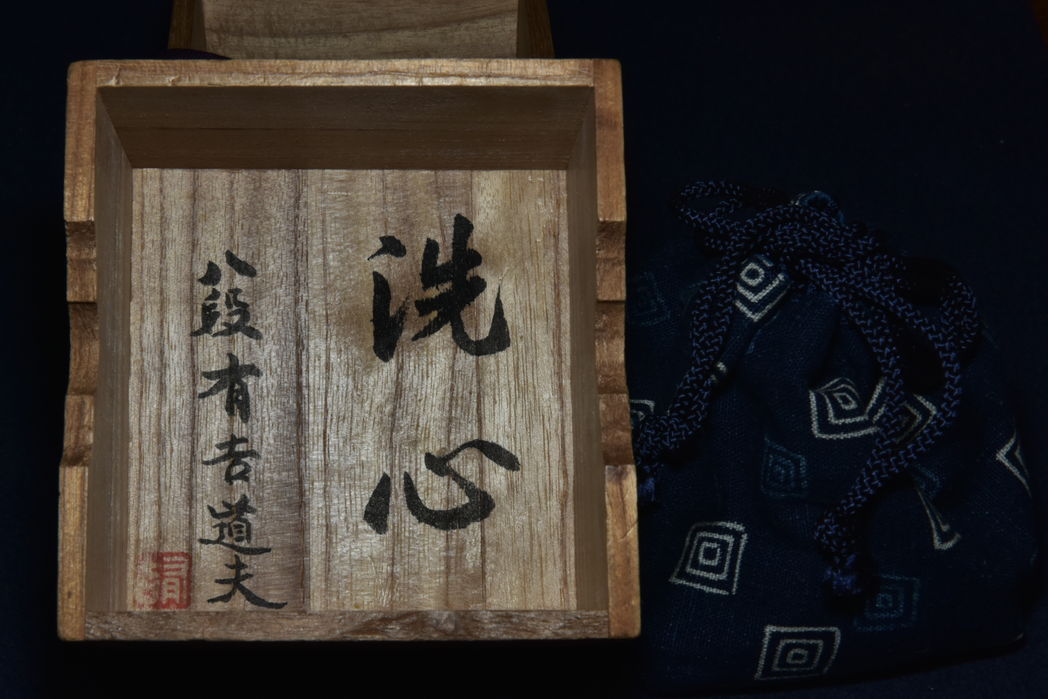 洗心
八段有吉道夫